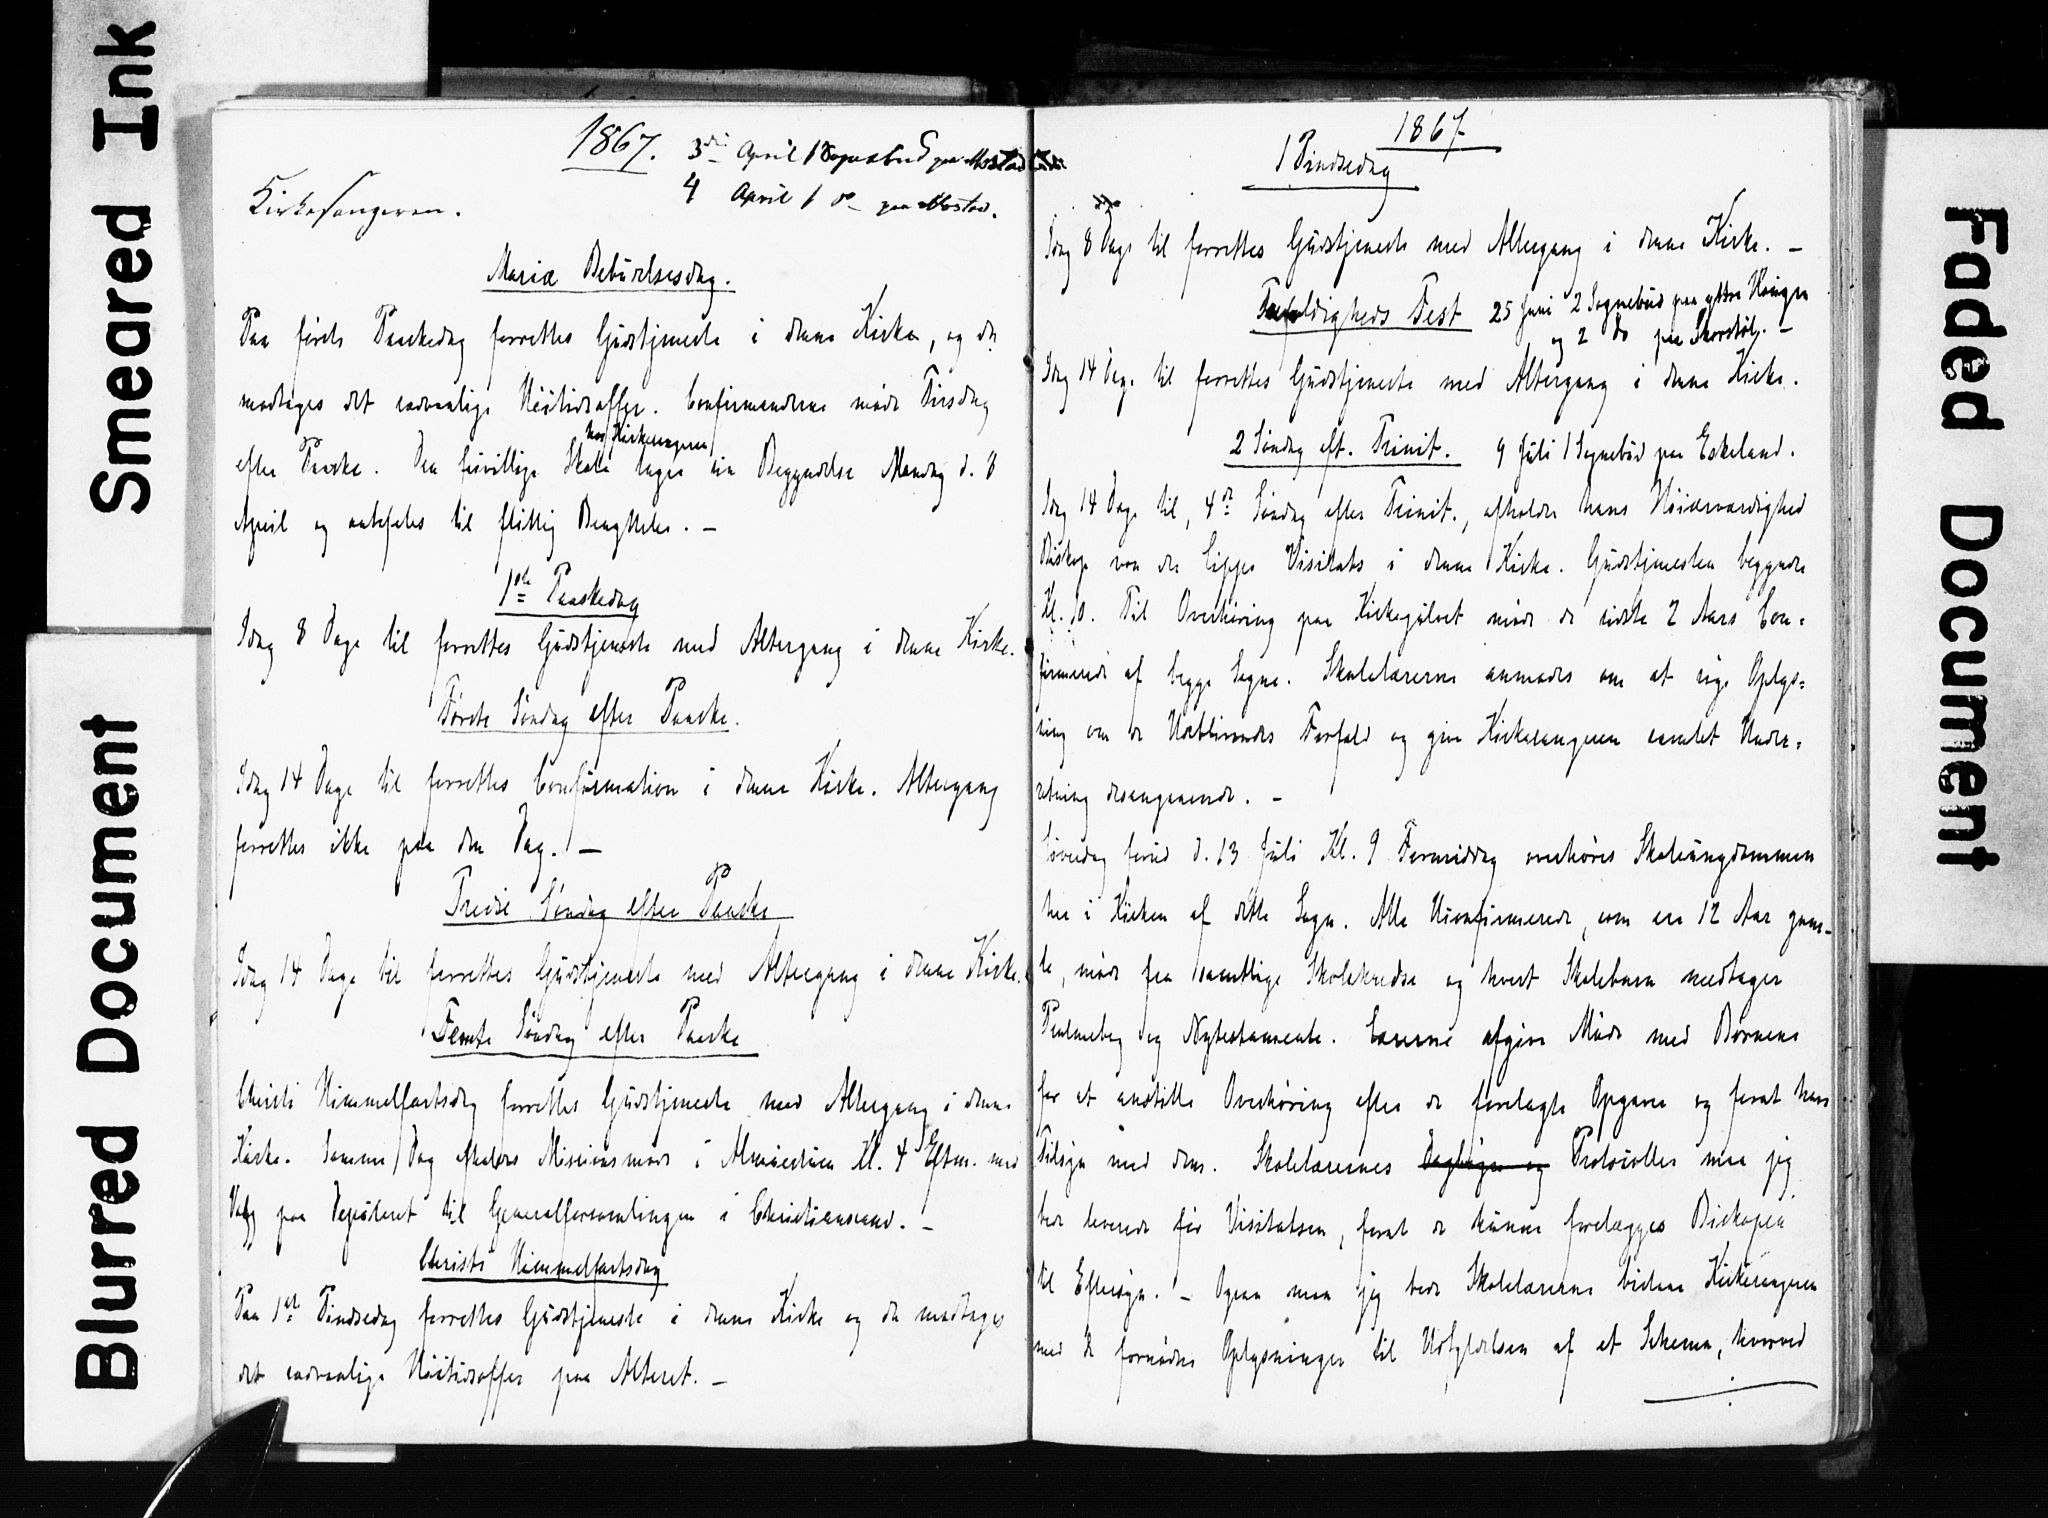 Smeared Ink
Blurred Document
Faded Document
1867.
3die April 1 Sognebud paa Mostad
4 April 1 do paa Mostad.
Kirkesangeren.
Mariæ Bebudelsesdag.
Paa første Paaskedag forrettes Gudstjeneste i denne Kirke, og da
modtages det sædvanlige Høitidsoffer. Confirmanderne møde Tirsdag
hos Kirkesangeren
efter Paaske. Den frivillige Skole tager sin Begyndelse Mandag d. 8
April og anbefales til flittig Benyttelse. –
1ste Paaskedag
Idag 8 Dage til forrettes Gudstjeneste med Altergang i denne Kirke.
Første Søndag efter Paaske.
Idag 14 Dage til forrettes Confirmation i denne Kirke. Altergang
forrettes ikke paa den Dag. –
Tredie Søndag efter Paaske
Idag 14 Dage til forrettes Gudstjeneste med Altergang i denne Kirke.
Femte Søndag efter Paaske
Christi Himmelfartsdag forrettes Gudstjeneste med Altergang i denne
Kirke. Samme Dag afholdes Missionsmøde i Kl. 4 Efterm. med
Valg paa Deputeret til Generalforsamlingen i Christianssand. –
Christi Himmelfartsdag
Paa 1ste Pindsedag forrettes Gudstjeneste i denne Kirke og da modtages
det sædvanlige Høitidsoffer paa Alteret. –
1867
1 Pindsedag
Idag 8 Dage til forrettes Gudstjeneste med Altergang i denne Kirke. –
Trefoldigheds Fest 25 Juni 2 Sognebud paa ydre
og 2 do paa –
Idag 14 Dag. til forrettes Gudstjeneste med Altergang i denne Kirke.
2 Søndag eft. Trinit. 9 Juli 1 Sognebud paa Eskeland.
Idag 14 Dage til, 4de Søndag efter Trinit., afholder hans Høiærværdighed
Biskop von der Lippe Visitats i denne Kirke. Gudstjenesten begynder
Kl. 10. Til Overhøring paa Kirkegulvet møde de sidste 2 Aars Con=
firmerede af begge Sogne. Skolelærerne anmodes om at søge Oplys=
ning om de Udeblivendes Forfald og give Kirkesangeren samlet Under=
retning desangaaende. –
Løverdag forud d. 13 Juli Kl. 9 Formiddag overhøres Skoleungdommen
her i Kirken af dette Sogn. Alle Uconfirmerede, som ere 12 Aar gam-
le, møde fra samtlige Skolekredse og hvert Skolebarn medtager
Psalmebog og Nytestamente. Lærerne afgive Møde med Børnene
for at anstille Overhøring efter de forelagte Opgaver og forat have
Tilsyn med dem. Skolelærernes Dagbøger og Protocoller maa jeg
bede leverede før Visitatsen, forat de kunne forelægges Biskopen
til Eftersyn. – Ogsaa maa jeg bede Skolelærerne bistaa Kirkesangeren
med de fornødne Oplysninger til Udfyldelsen af et Schema, hvorved